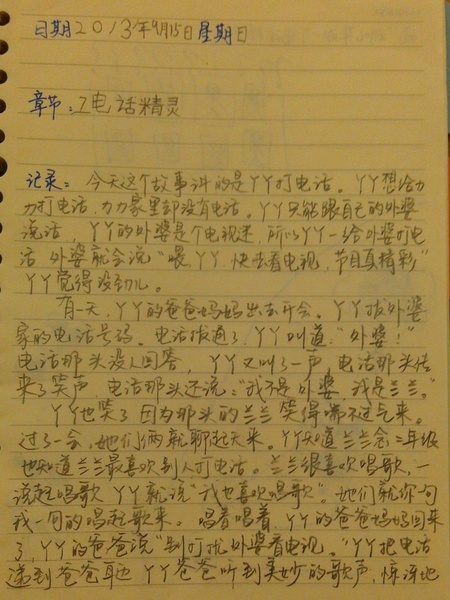 日期2013年9月15日星期日
章节：7电话精灵
记录：今天这个故事讲的是丫丫打电话。丫丫想给力
力打电话，力力家里却没有电话。丫丫只能跟自己的外婆
说话，丫丫的外婆是个电视迷，所以丫丫一给外婆打电
话 外婆就会说“喂，丫丫，快去看电视，节目真精彩”
丫丫觉得没劲儿。
有一天，丫丫的爸爸妈妈出去开会。丫丫拨外婆
家的电话号码。电话拨通了，丫丫叫道“外婆！”
电话那头没人回答，丫丫又叫了一声，电话那头传
来了笑声，电话那头还说：“我不是外婆，我是兰兰。”
丫丫也笑了 因为那头的兰兰笑得喘不过气来。
过了一会，她们俩就聊起天来。丫丫知道兰兰念二年级
也知道兰兰最喜欢别人打电话。兰兰很喜欢唱歌，一
说起唱歌 丫丫就说“我也喜欢唱歌”。她们就你一句
我一句的唱起歌来。唱着唱着，丫丫的爸爸妈妈回来
了，丫丫的爸爸说“别打扰外婆看电视。”丫丫把电话
递到爸爸耳边 丫丫爸爸听到美妙的歌声，惊讶地